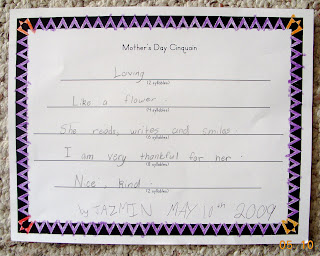 Mother's Day Cinquain
Loving
(2 syllables)
Like a flower.
(4 syllables)
She reads, writes and smiles
(6 syllables)
I am very thankful for her.
(8 syllables)
Nice, kind.
(2 syllables)
by JAZMIN MAY 10th 2009